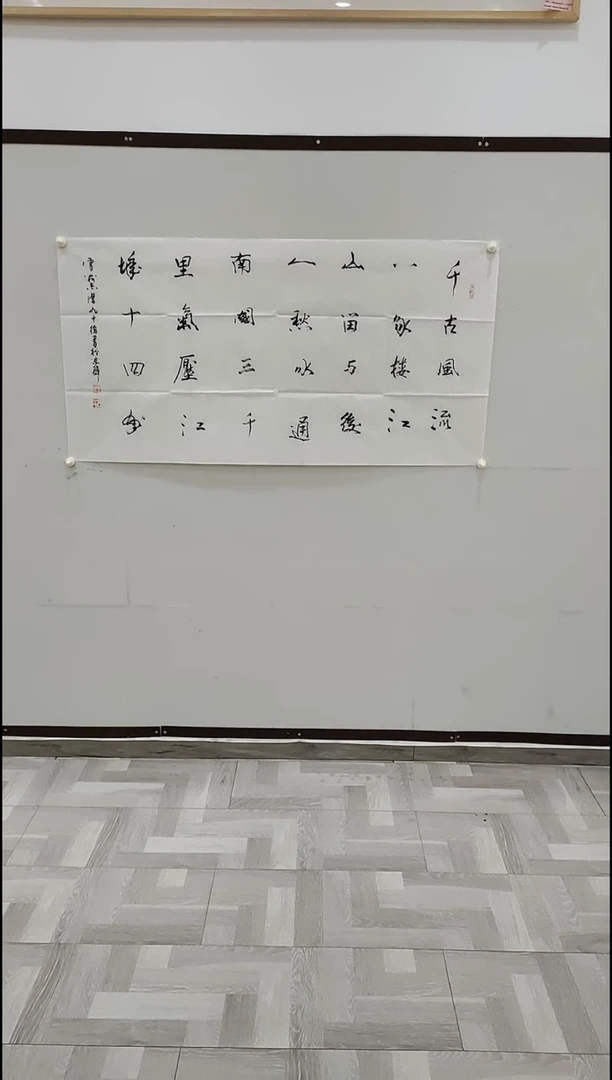 千古風流
八詠樓江
山留与後
人愁水通
南國三千
里氣壓江
城十四州